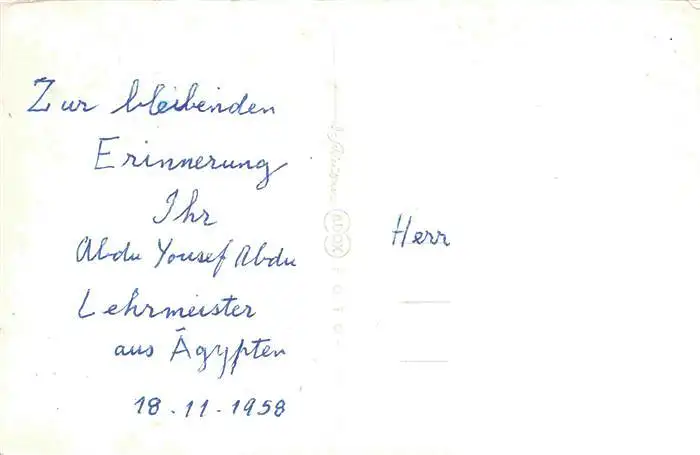 Zur bleibenden
Erinnerung
Ihr
Abdu Yousef Abdu
Lehrmeister
aus Ägypten
18.11.1958
Herr
FOTO